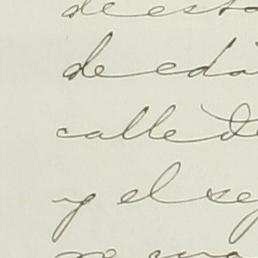 de esta
de eda
calle de
y el se